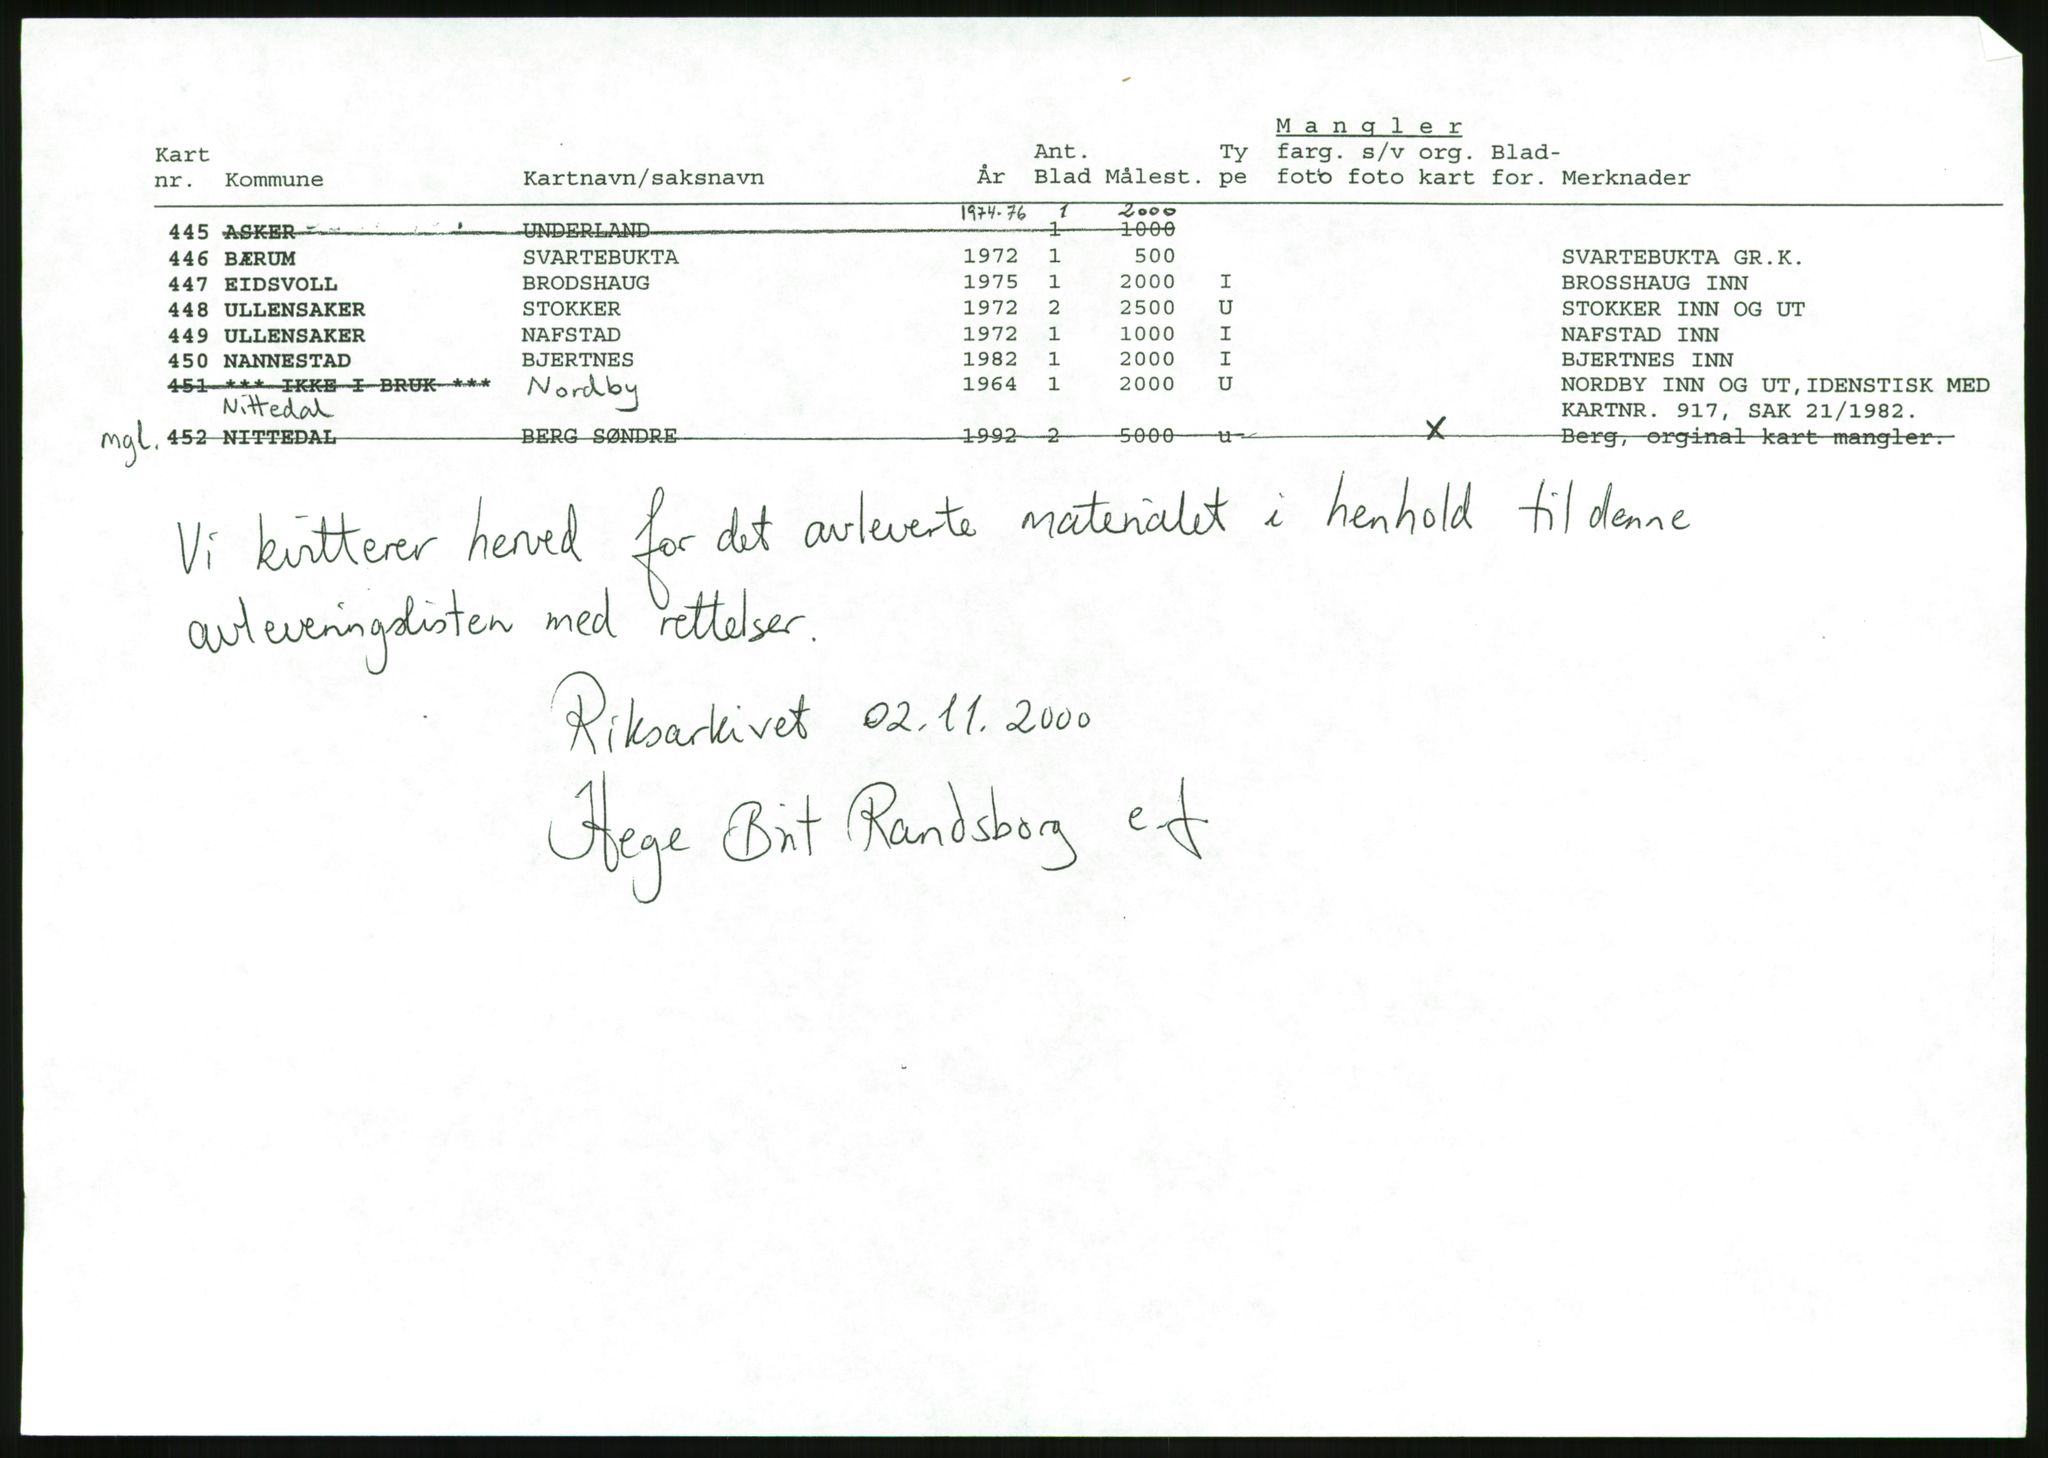 M a n g l e r
Kart Ant. Ty farg. s/v org. Blad-
nr. Kommune Kartnavn/saksnavn År Blad Målest. pe foto foto kart for. Merknader
1974-76 1 2000
445 ASKER UNDERLAND 1 1000
446 BÆRUM SVARTEBUKTA 1972 1 500 SVARTEBUKTA GR.K.
447 EIDSVOLL BRODSHAUG 1975 1 2000 I BROSSHAUG INN
448 ULLENSAKER STOKKER 1972 2 2500 U STOKKER INN OG UT
449 ULLENSAKER NAFSTAD 1972 1 1000 I NAFSTAD INN
450 NANNESTAD BJERTNES 1982 1 2000 I BJERTNES INN
451 *** IKKE I BRUK *** Nordby 1964 1 2000 U NORDBY INN OG UT,IDENSTISK MED
Nittedal KARTNR. 917, SAK 21/1982.
mgl. 452 NITTEDAL BERG SØNDRE 1992 2 5000 u X Berg, orginal kart mangler.
Vi kvitterer herved for det avleverte materialet i henhold til denne
avleveringslisten med rettelser.
Riksarkivet 02.11.2000
Hege Brit Randsborg e.f